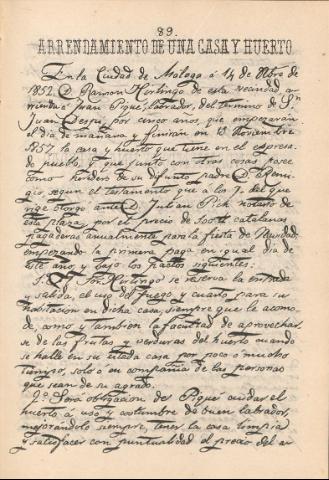 89.
ARRENDAMIENTO DE UNA CASA Y HUERTO
En la Ciudad de Málaga á 14 de Nbre de
1852. D. Ramon Hortingo de esta vecindad ar-
rienda á Juan Piqué, labrador, del termino de Sn
Juan Despí, por cinco años, que empezarán
el dia de mañana y finirán en 13 Noviembre
1857, la casa y huerto que tiene en el espresa-
do pueblo, y que junto con otras cosas posee
como heredero de su difunto padre D. Remi-
gio, segun el testamento que á los 7 del que
rige otorgó ante D. Julian Pich notario de
esta plaza, por el precio de catalanas
pagaderas anualmente para la fiesta de Navidad
empezando la primera paga en igual dia de
este año y bajo los pactos siguientes.
1.º El Sor. Hortingo se reserva la entrada
y salida, el uso del fuego y cuarto para su
habitacion en dicha casa, siempre que le acomo-
de, como y tambien la facultad de aprovechar-
se de las frutas y verduras del huerto cuando
se halle en su citada casa por poco ó mucho
tiempo, solo ó en compañia de las personas
que sean de su agrado.
2.º Será obligacion de Piqué cuidar el
huerto á uso y costumbre de buen labrador,
mejorándolo siempre, tener la casa limpia
y satisfacer con puntualidad el precio del ar-